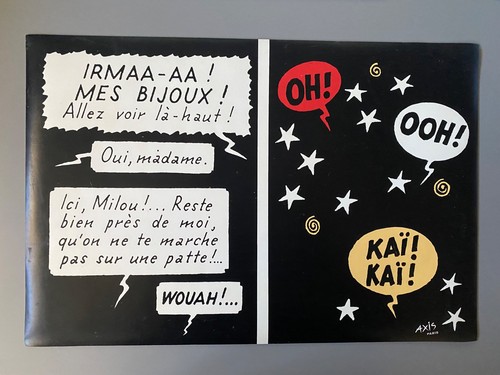 IRMAA-AA !
MES BIJOUX !
Allez voir là-haut !
Oui, madame.
Ici, Milou!... Reste
bien près de moi,
qu'on ne te marche
pas sur une patte!...
WOUAH!...
OH!
OOH!
KAÏ!
KAÏ!
AXIS
PARIS